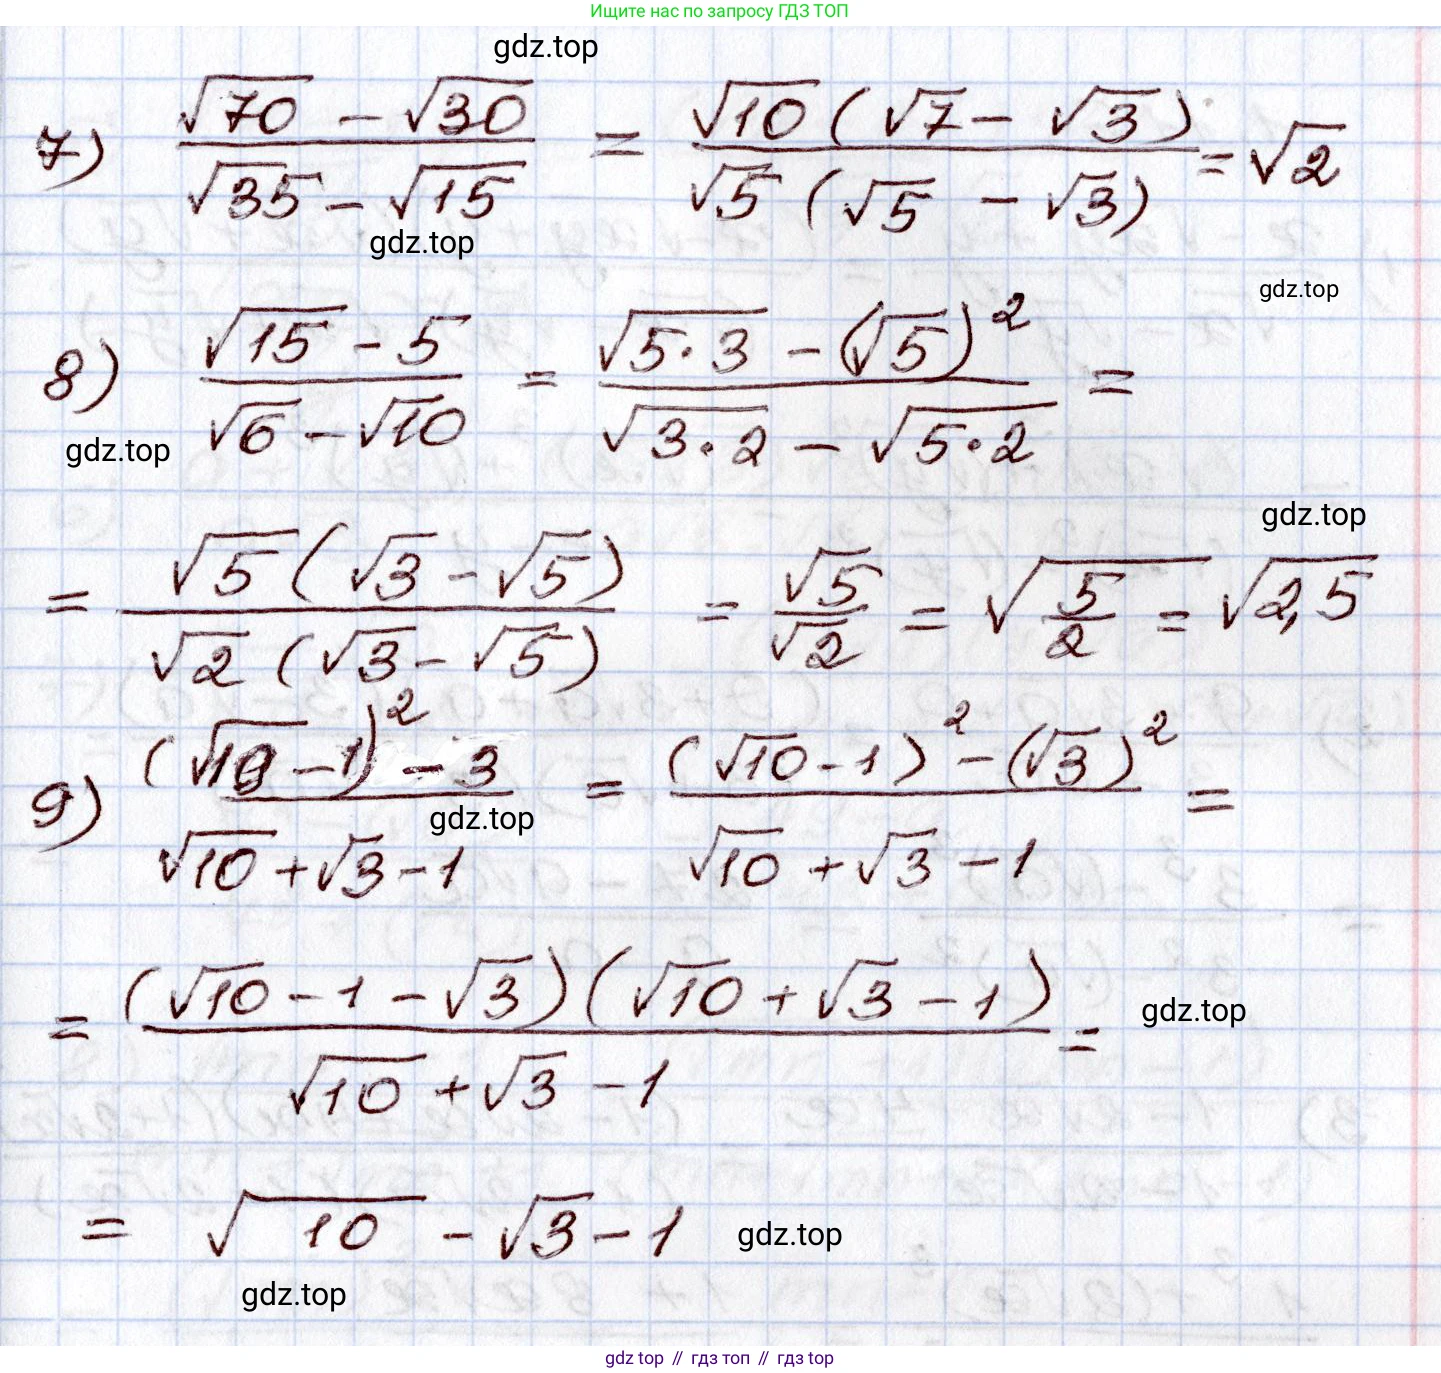 Ищите нас по запросу ГДЗ ТОП
gdz.top
7) (√70 - √30)/(√35 - √15) = (√10(√7 - √3))/(√5(√5 - √3)) = √2
gdz.top
gdz.top
8) (√15 - 5)/(√6 - √10) = (√(5·3) - (√5)²)/(√(3·2) - √(5·2)) =
gdz.top
gdz.top
= (√5(√3 - √5))/(√2(√3 - √5)) = √5/√2 = √(5/2) = √2,5
9) ((√10 - 1)² - 3)/(√10 + √3 - 1) = ((√10 - 1)² - (√3)²)/(√10 + √3 - 1) =
gdz.top
= ((√10 - 1 - √3)(√10 + √3 - 1))/(√10 + √3 - 1) =
gdz.top
= √10 - √3 - 1
gdz.top
gdz.top
gdz top // гдз топ // гдз top